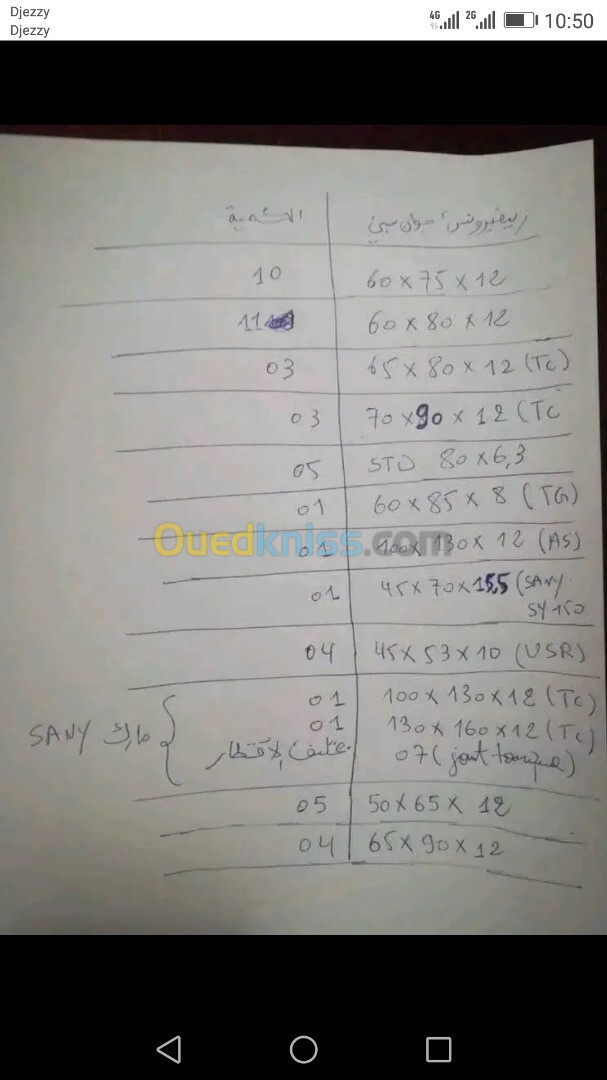 Djezzy
Djezzy
4G 2G 10:50
ريفيرونس جوان سبي الكمية
60 x 75 x 12 10
60 x 80 x 12 11
65 x 80 x 12 (Tc) 03
70 x 90 x 12 (Tc 03
STD 80 x 6,3 05
60 x 85 x 8 (TG) 01
100 x 130 x 12 (AS) 01
Ouedkniss.com
45 x 70 x 15,5 (SANY 01
SY 150
45 x 53 x 10 (USR) 04
100 x 130 x 12 (Tc) 01
130 x 160 x 12 (Tc) 01
SANY مارك
07 (joint torique) مختلف الأقطار
50 x 65 x 12 05
65 x 90 x 12 04